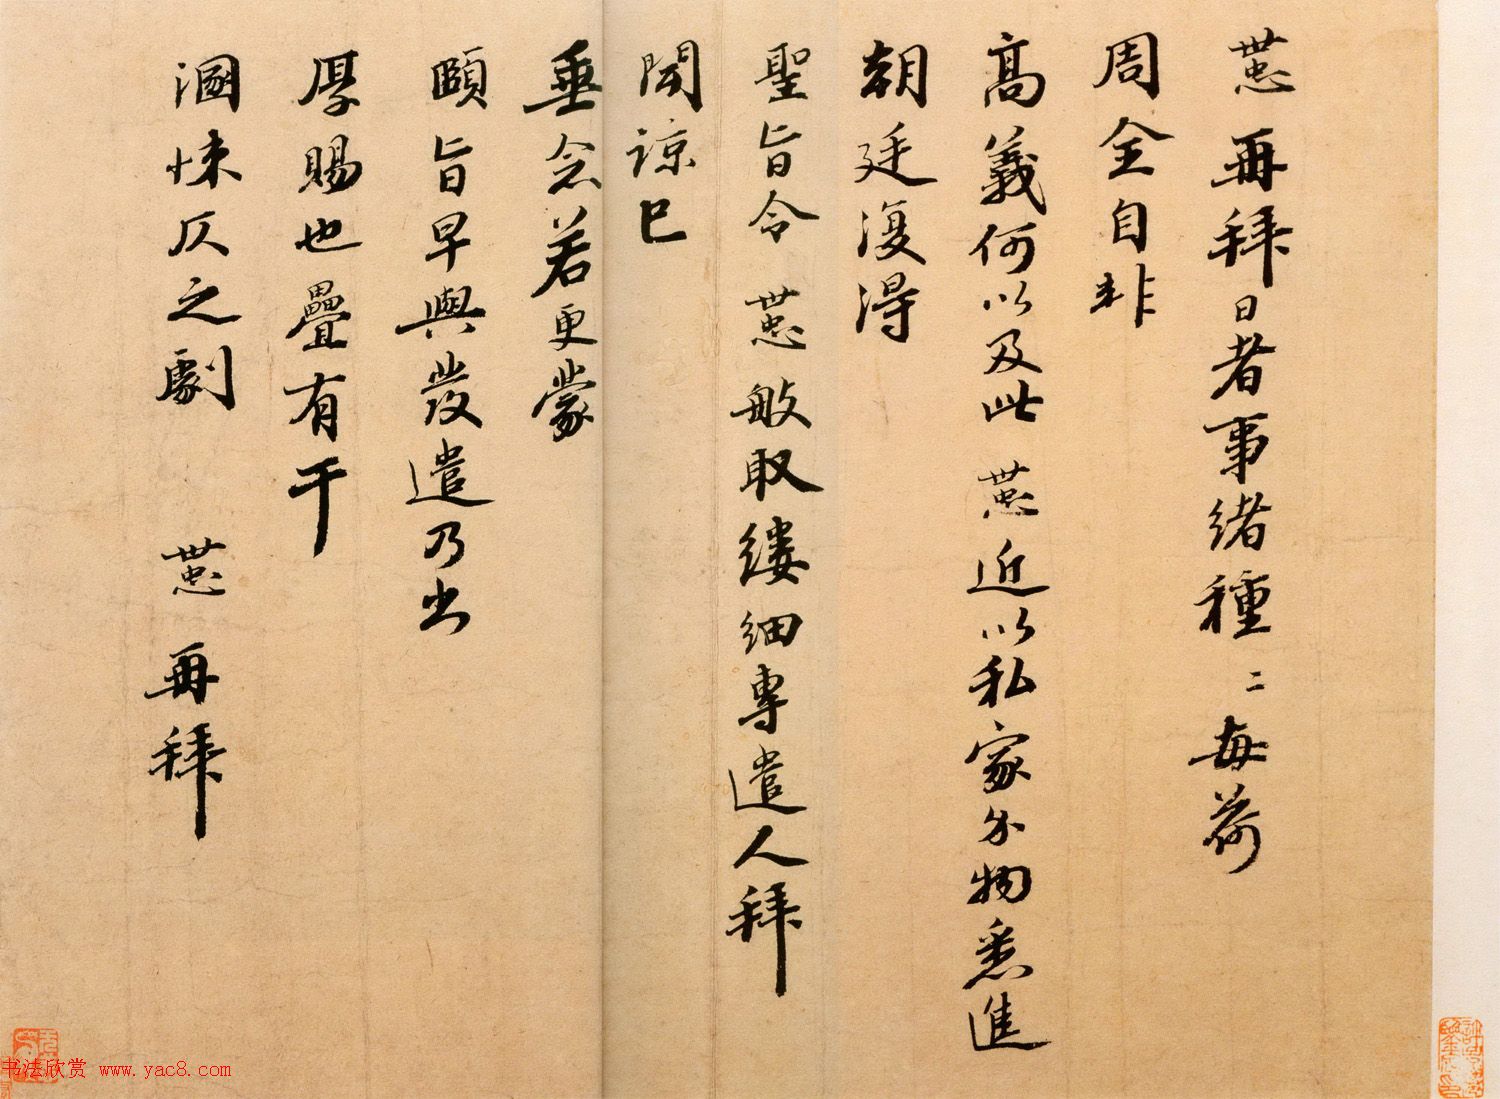 世忠再拜日者事緒種々每荷
周全自非
高義何以及此世忠近以私家分物悉進
朝廷復得
聖旨令世忠般取縷細專遣人拜
聞諒已
垂念若更蒙
頤旨早與發遣乃出
厚賜也疊有干
溷悚仄之劇 世忠再拜
书法欣赏 www.yac8.com